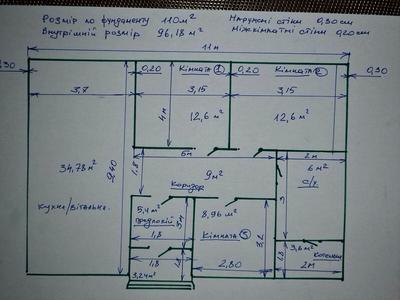 Розмір по фундаменту 110м²
Наружні стіни 0,30см
Внутрішній розмір 96,18м²
Міжкімнатні стіни 0,20см
11м
0,30
0,20
Кімната 1
0,20
Кімната 2
0,30
3,7
3,15
3,15
4м
12,6м²
12,6м²
5м
2м
34,78м²
9,40
1,8
9м²
6м²
с/у
Коридор
3
Кухня/вітальня
5,4м²
3,4
8,96м²
1,8
Кімната 3
3,2
3,6м²
Котельня
1,8
1,8
3,24м²
2,80
2м